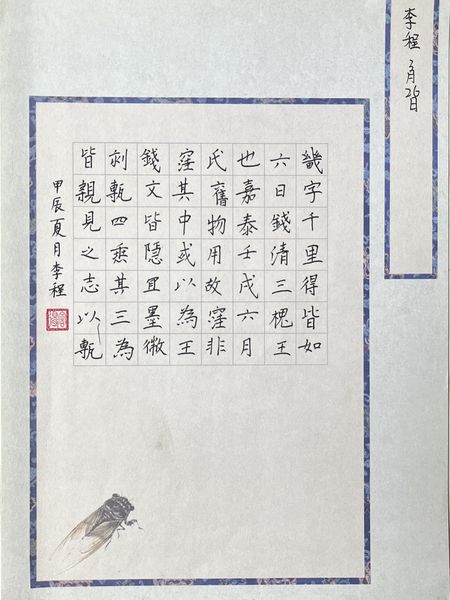 李程
畿字千里得皆如
六日錢清三槐王
也嘉泰壬戌六月
氏舊物用故窪非
窪其中或以為王
錢文皆隱且墨微
刺甎四垂其三為
皆親見之志以甎
甲辰夏月李程